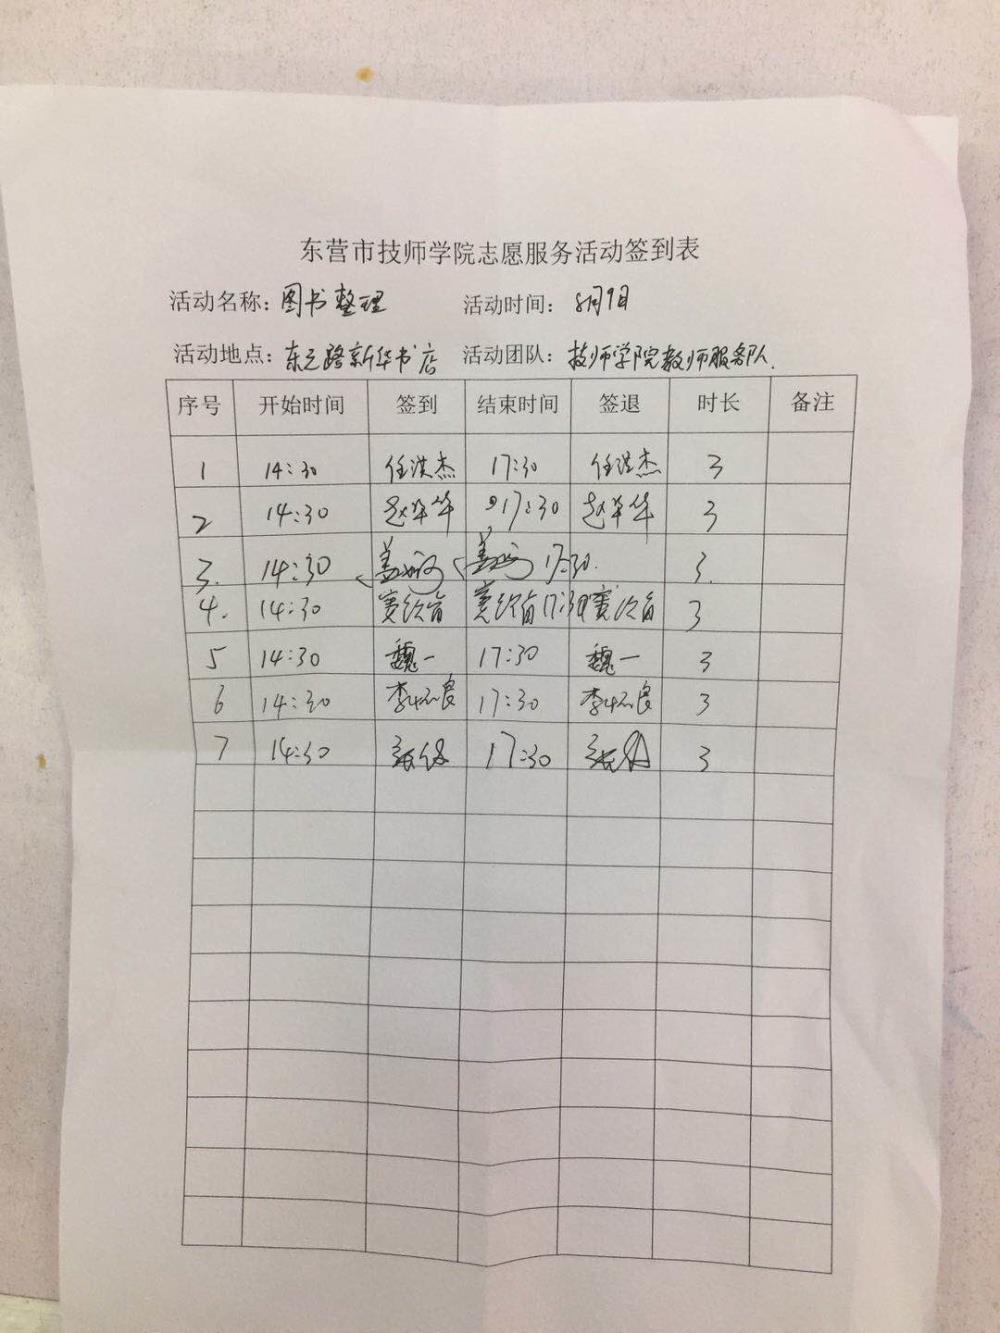 东营市技师学院志愿服务活动签到表
活动名称：图书整理 活动时间：8月9日
活动地点：东三路新华书店 活动团队：技师学院教师服务队.
序号 开始时间 签到 结束时间 签退 时长 备注
1 14:30 任洪杰 17:30 任洪杰 3
2 14:30 赵华华 17:30 赵华华 3
3. 14:30 17:30. 3.
4. 14:30 17:30 3
5 14:30 魏一 17:30 魏一 3
6 14:30 李怀良 17:30 李怀良 3
7 14:30 17:30 3